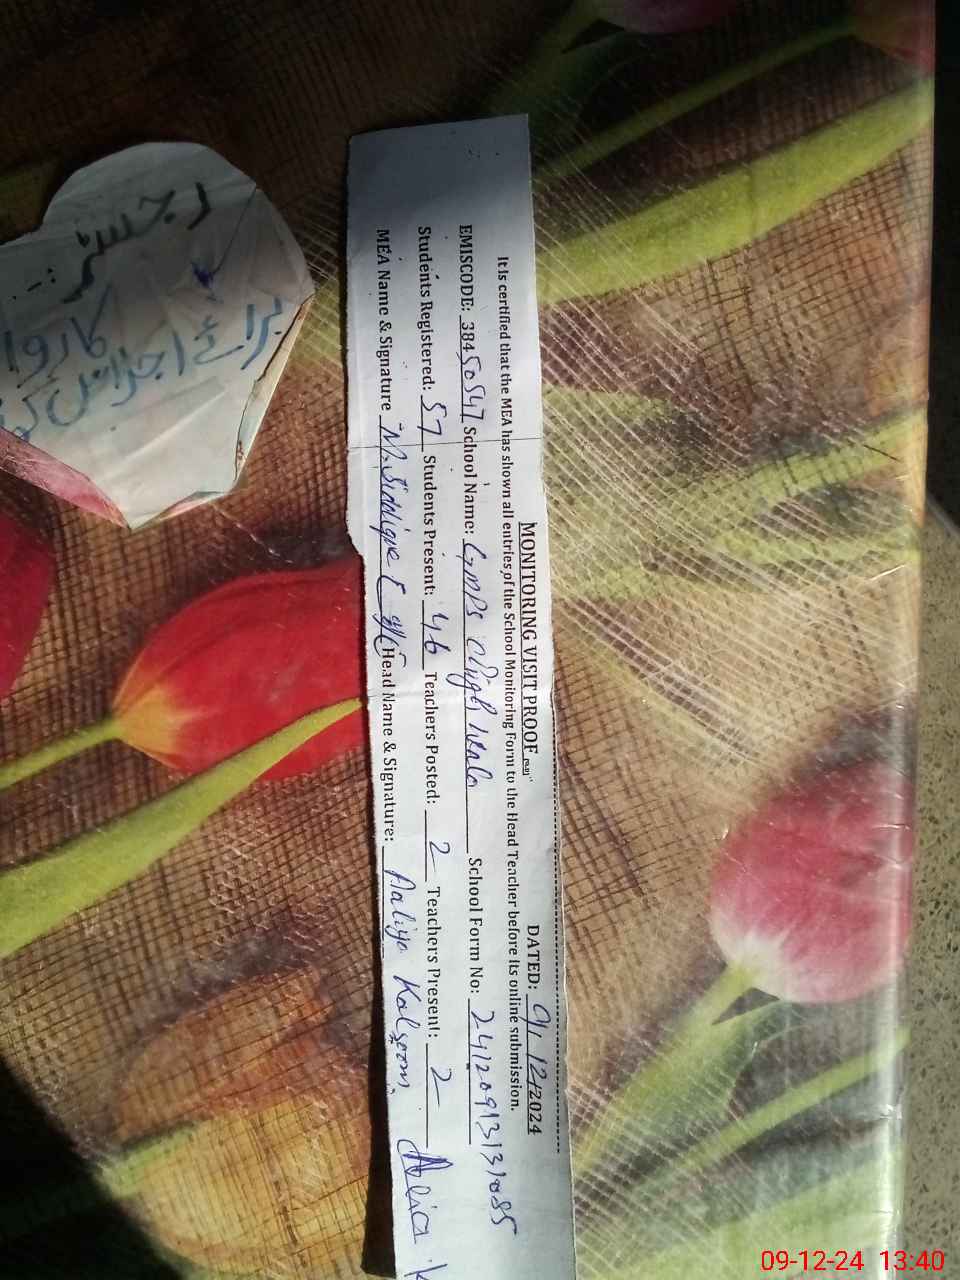 MONITORING VISIT PROOF
DATED: 9/12/2024
It is certified that the MEA has shown all entries of the School Monitoring Form to the Head Teacher before its online submission.
EMISCODE: 38450547 School Name: GMPS Kala School Form No: 24120913131085
Students Registered: 57 Students Present: 46 Teachers Posted: 2 Teachers Present: 2
MEA Name & Signature M. Siddique Head Name & Signature: Aaliya Kalsoom
رجسٹر
برائے اجلاس
09-12-24 13:40